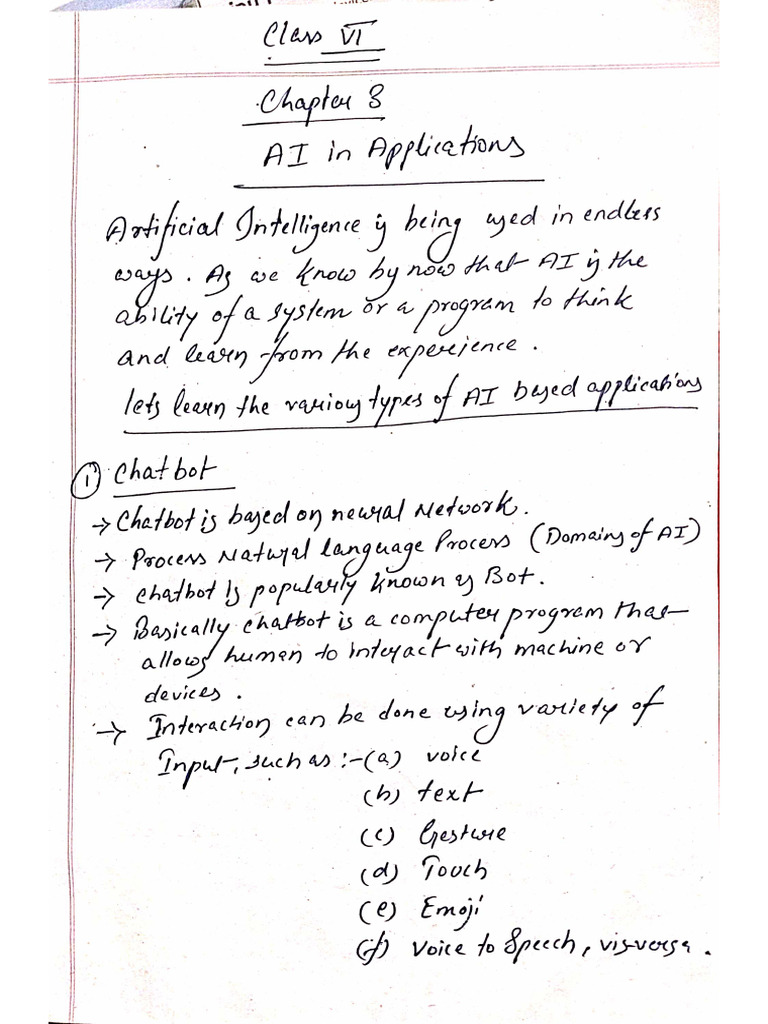 Class VI
Chapter 8
AI in Applications
Artificial Intelligence is being used in endless
ways. As we know by now that AI is the
ability of a system or a program to think
and learn from the experience.
lets learn the various types of AI based applications
① Chatbot
→ Chatbot is based on neural Network.
→ Process Natural language Process (Domains of AI)
→ chatbot is popularly known as Bot.
→ Basically chatbot is a computer program that
allows human to interact with machine or
devices.
→ Interaction can be done using variety of
Input, such as :- (a) voice
(b) text
(c) Gesture
(d) Touch
(e) Emoji
(f) Voice to Speech, vis-versa.